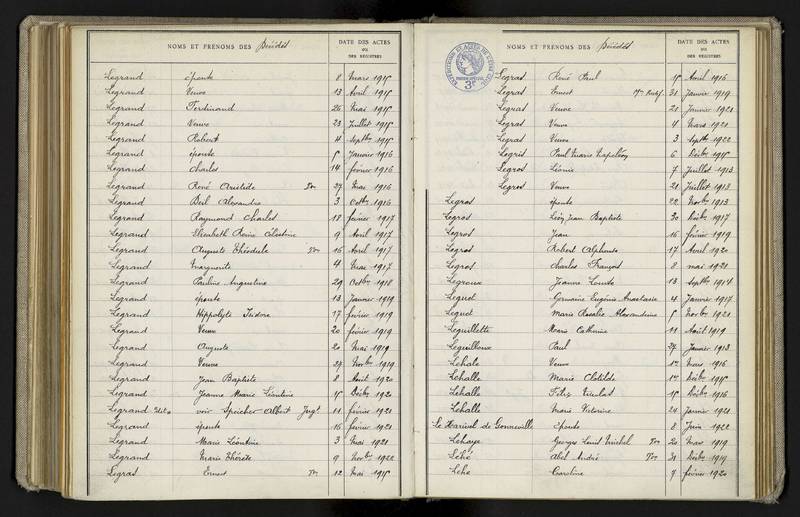 NOMS ET PRÉNOMS DES Décédés
DATE DES ACTES
OU
DES REGISTRES
Legrand épouse 8 Mars 1915
Legrand Veuve 13 Avril 1915
Legrand Ferdinand 26 Mai 1915
Legrand Veuve 23 Juillet 1915
Legrand Robert 4 Septbre 1915
Legrand épouse 5 Janvier 1916
Legrand Charles 14 février 1916
Legrand René Aristide 29 Mai 1916
Legrand Alexandre 3 Octbre 1916
Legrand Raymond Charles 18 février 1917
Legrand Elisabeth Reine Célestine 9 Avril 1917
Legrand Auguste Théodule 16 Avril 1917
Legrand Marguerite 4 Mai 1917
Legrand Pauline Augustine 29 Octbre 1918
Legrand épouse 13 Janvier 1919
Legrand Hippolyte Isidore 17 février 1919
Legrand Veuve 20 février 1919
Legrand Auguste 20 Mai 1919
Legrand Veuve 29 Novbre 1919
Legrand Jean Baptiste 8 Août 1920
Legrand Jeanne Marie Léontine 15 Décbre 1920
Legrand voir Speicher Albert Jugt 11 février 1921
Legrand épouse 16 février 1921
Legrand Marie Léontine 3 Mai 1921
Legrand Marie Thérèse 9 Novbre 1922
Legras Ernest 12 Mai 1915
NOMS ET PRÉNOMS DES Décédés
DATE DES ACTES
OU
DES REGISTRES
3F
Legras René Paul 15 Avril 1916
Legras Ernest 31 Janvier 1919
Legras Veuve 21 Janvier 1921
Legras Veuve 4 Mars 1921
Legras Veuve 3 Septbre 1922
Legris Paul Marie Napoléon 6 Décbre 1915
Legros Léonie 7 Juillet 1913
Legros Veuve 21 Juillet 1913
Legros épouse 22 Novbre 1913
Legros Léon Jean Baptiste 30 Décbre 1917
Legros Jean 16 février 1919
Legros Robert Alphonse 17 Avril 1920
Legros Charles François 8 mai 1921
Legroux Jeanne Louise 13 Septbre 1914
Leguet Germaine Eugénie Anastasie 4 Janvier 1917
Leguet Marie Rosalie Alexandrine 5 Novbre 1921
Leguillette Marie Catherine 11 Août 1919
Leguilloux Paul 27 Janvier 1913
Lehale Veuve 1er Mars 1916
Lehalle Marie Clotilde 1er Décbre 1915
Lehalle 15 Décbre 1916
Lehalle Marie Victorine 24 Janvier 1921
Le Harivel de Gonneville Epouse 8 Juin 1922
Lehaye Georges Louis Michel 20 Mars 1919
Léhé Abel André 31 Décbre 1919
Lehe Caroline 9 février 1920